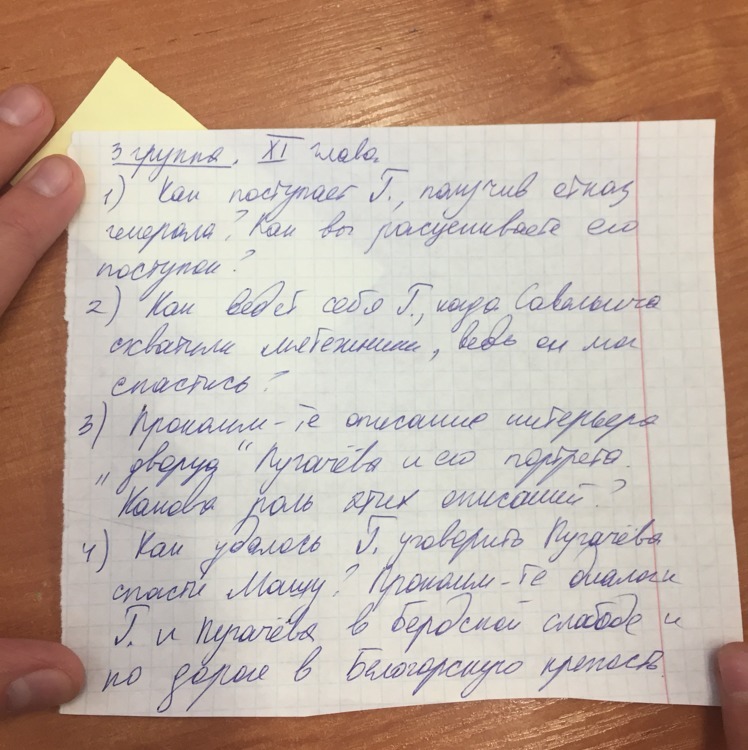 3 группа. XI глава.
1) Как поступает Г., получив отказ
генерала? Как вы расцениваете его
поступок?
2) Как ведёт себя Г., когда Савельича
схватили мятежники, ведь он мог
спастись?
3) Прокомм-те описание интерьера
"дворца" Пугачёва и его портрета.
Какова роль этих описаний?
4) Как удалось Г. уговорить Пугачёва
спасти Машу? Прокомм-те диалоги
Г. и Пугачёва в Бердской слободе и
по дороге в Белогорскую крепость.